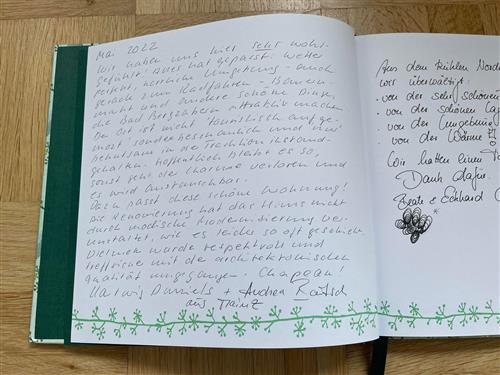 Mai 2022
Wir haben uns hier sehr wohl
gefühlt! Alles hat gepasst: Wetter
perfekt, herrliche Umgebung - auch
gerade zum Radfahren - bummeln
macht und andere schöne Dinge,
die Bad Bergzabern attraktiv machen.
Der Ort ist nicht touristisch aufge-
motzt sondern beschaulich und nur
behutsam in die Tradition
gehalten. Hoffentlich bleibt es so,
sonst geht der Charme verloren und
es wird austauschbar.
Dazu passt diese schöne Wohnung!
Die Renovierung hat das Haus nicht
durch modische Modernisierung ver-
unstaltet, wie es leider so oft geschieht.
Vielmehr wurde respektvoll und
treffsicher mit der architektonischen
Qualität umgegangen. Chapeau!
Hartwig Daniels + Andrea
aus Mainz
Aus dem kühlen Nord
wir überwältigt:
. von der sehr schönen
. von der schönen
. von der Umgebung
. von der Wärme
Wir hatten einen
Dank dafür.
Beate & Eckhard